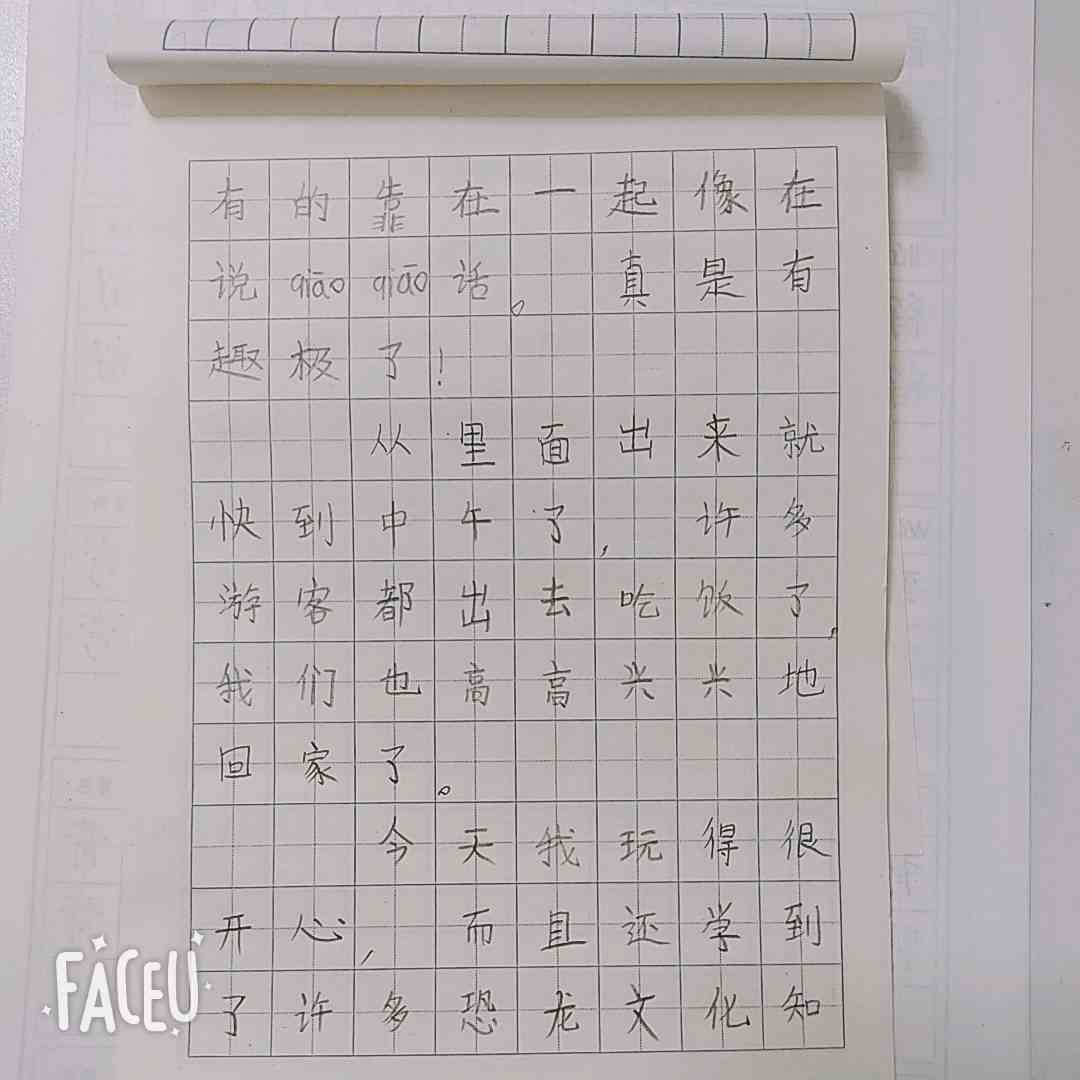 有的靠在一起像在
说qiāo qiāo话。真是有
趣极了！
从里面出来就
快到中午了，许多
游客都出去吃饭了，
我们也高高兴兴地
回家了。
今天我玩得很
开心，而且还学到
了许多恐龙文化知
FACEU